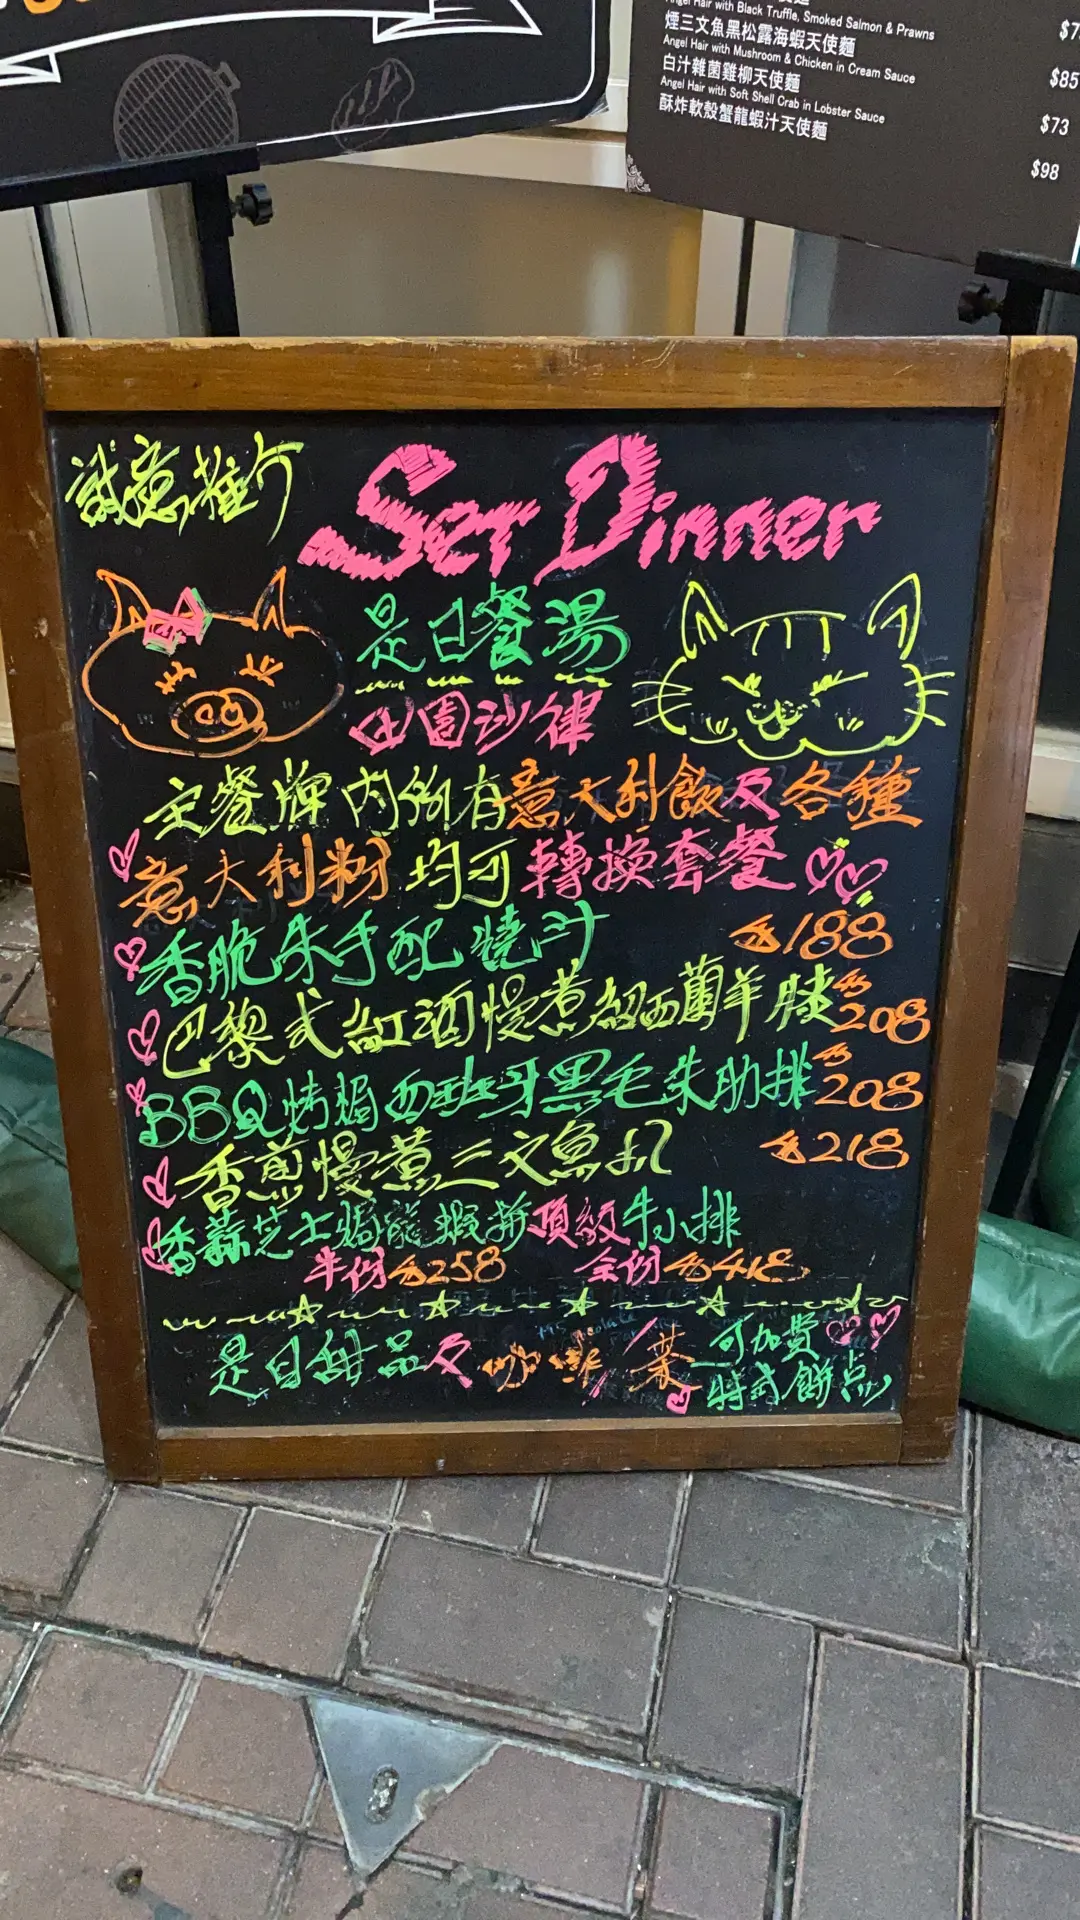 Angel Hair with Black Truffle, Smoked Salmon & Prawns
煙三文魚黑松露海蝦天使麵
Angel Hair with Mushroom & Chicken in Cream Sauce
白汁雜菌雞柳天使麵 $85
Angel Hair with Soft Shell Crab in Lobster Sauce
酥炸軟殼蟹龍蝦汁天使麵 $73
$98
誠意推介
Set Dinner
是日餐湯
田園沙律
主餐牌內所有意大利飯及各種
意大利粉均可轉換套餐
香脆朱手配燒汁 $188
巴黎式紅酒慢煮紐西蘭羊膝 $208
BBQ烤焗西班牙黑毛朱肋排 $208
香煎慢煮三文魚扒 $218
香蒜芝士焗龍蝦拼頂級牛小排
半份$258 全份$418
是日甜品及 咖啡/茶
可加費
特式餅点